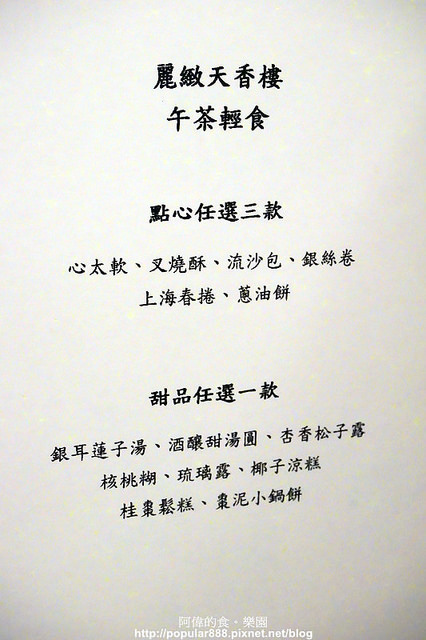 麗緻天香樓
午茶輕食
點心任選三款
心太軟、叉燒酥、流沙包、銀絲卷
上海春捲、蔥油餅
甜品任選一款
銀耳蓮子湯、酒釀甜湯圓、杏香松子露
核桃糊、琉璃露、椰子涼糕
桂棗鬆糕、棗泥小鍋餅
阿偉的食。樂園
http://popular888.pixnet.net/blog